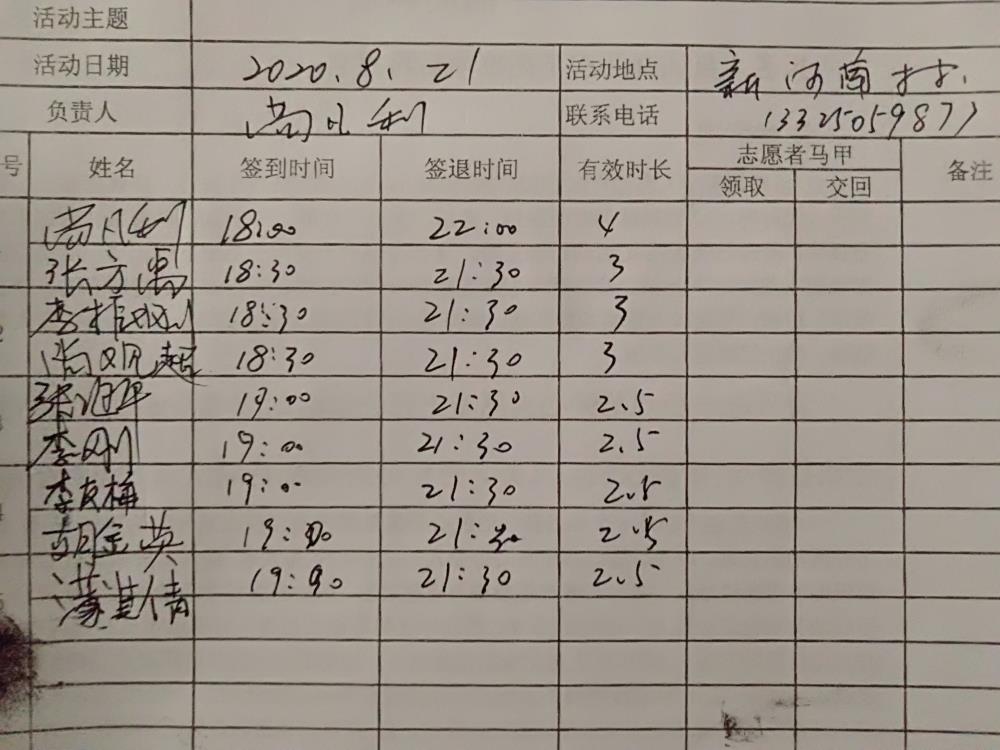 活动主题
活动日期 2020.8.21 活动地点 新河南村
负责人 尚凡利 联系电话 13325059877
号 姓名 签到时间 签退时间 有效时长 志愿者马甲 备注
领取 交回
尚凡利 18:00 22:00 4
张方禹 18:30 21:30 3
李振刚 18:30 21:30 3
尚明超 18:30 21:30 3
张 19:00 21:30 2.5
李刚 19:00 21:30 2.5
李友梅 19:00 21:30 2.5
胡金英 19:00 21:30 2.5
倩 19:00 21:30 2.5